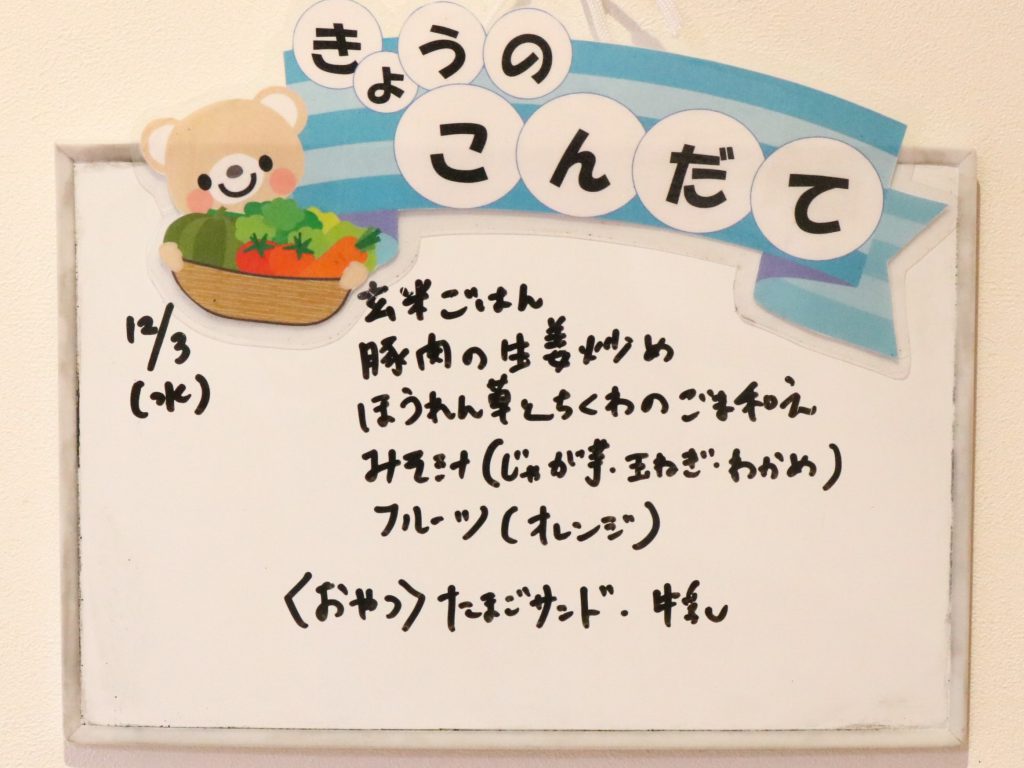 きょうの
こんだて
12/3
(水)
玄米ごはん
豚肉の生姜炒め
ほうれん草とちくわのごま和え
みそ汁(じゃが芋・玉ねぎ・わかめ)
フルーツ(オレンジ)
〈おやつ〉たまごサンド・牛乳